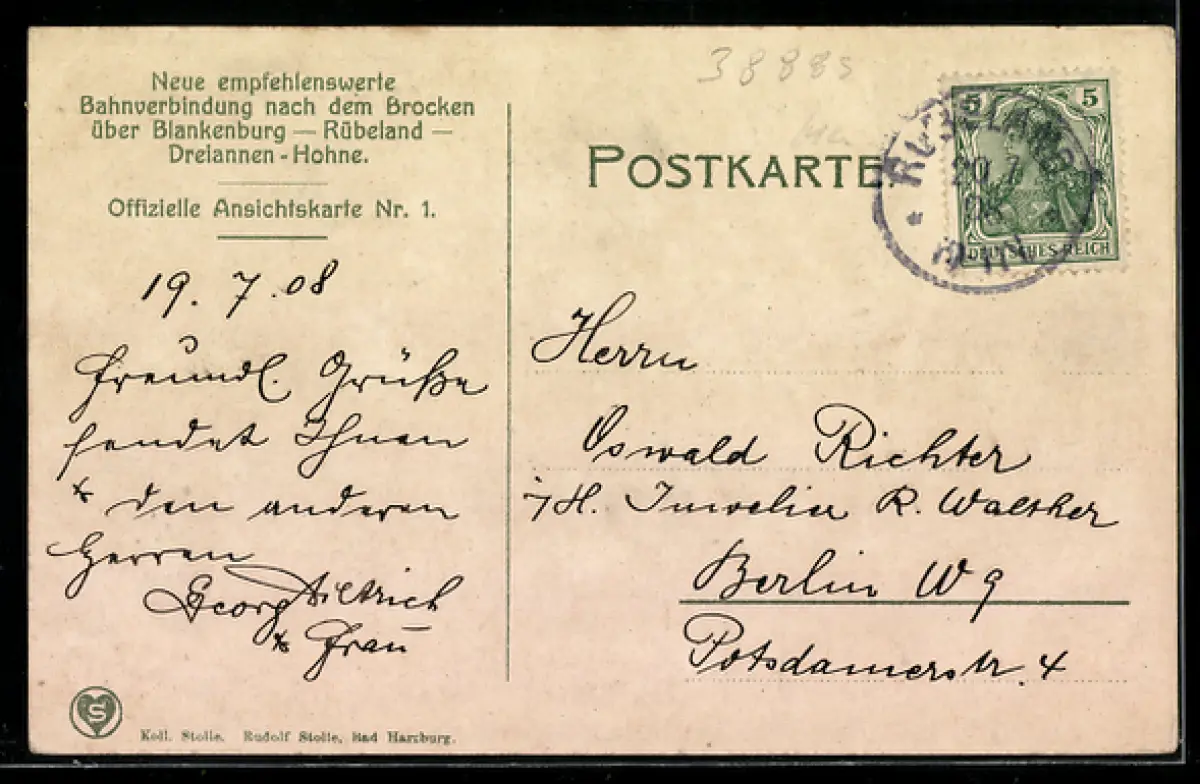 38885
Neue empfehlenswerte
Bahnverbindung nach dem Brocken
über Blankenburg — Rübeland —
Dreiannen - Hohne.
Offizielle Ansichtskarte Nr. 1.
POSTKARTE.
5 5
DEUTSCHES REICH
RÜBELAND
20 7
08
19. 7. 08
Freundl. Grüße
sendet Ihnen
& den anderen
Herren
Georg Dietrich
& Frau
Herrn
Oswald Richter
i/H. Juwelier R. Walther
Berlin W 9
Potsdamerstr. 4
S
Koll. Stolle. Rudolf Stolle, Bad Harzburg.